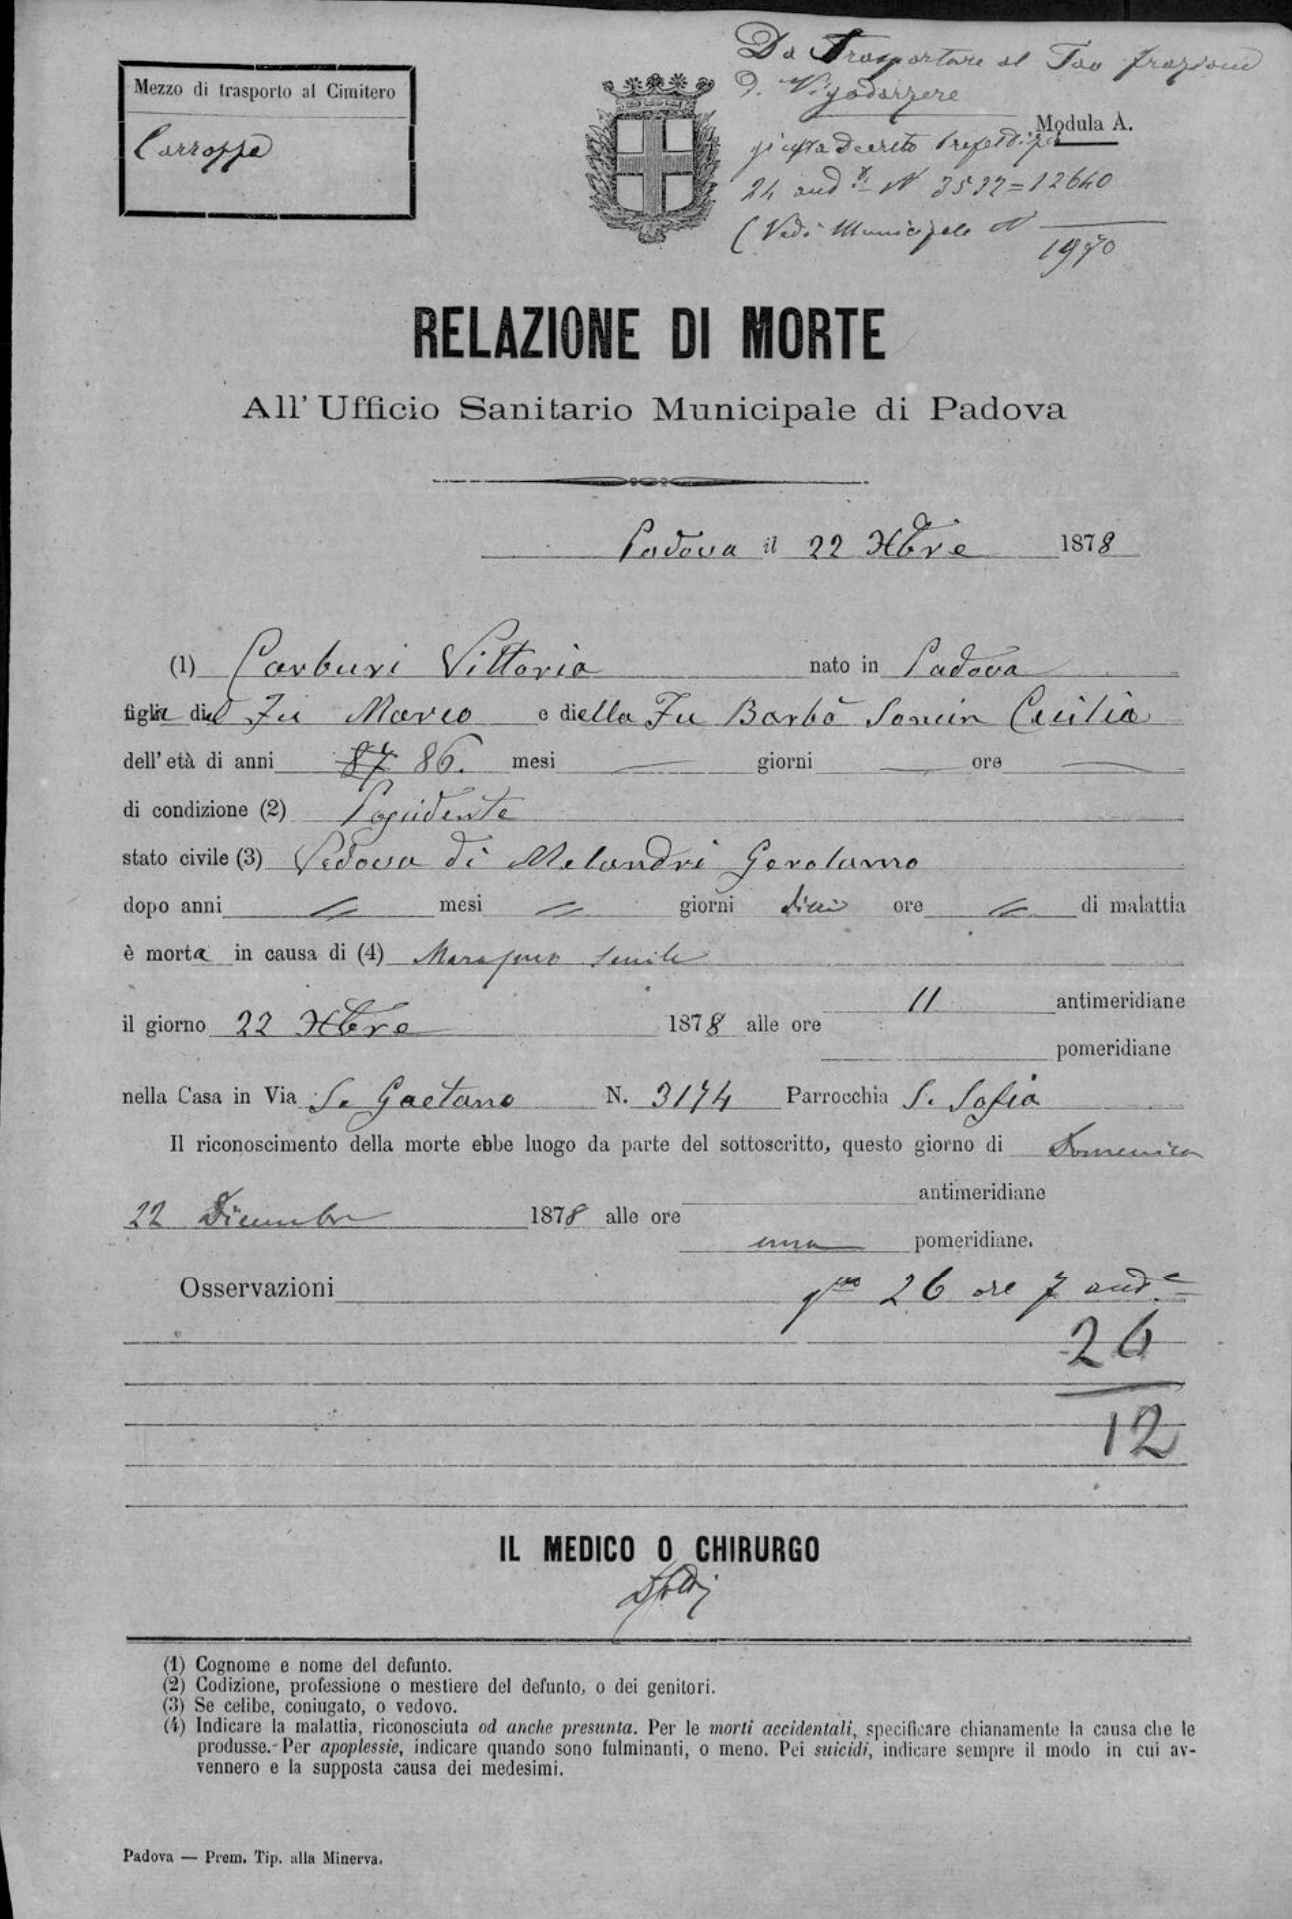 Mezzo di trasporto al Cimitero
Carrozza
Da Trasportare al Tao frazione
di Vigodarzere
Modula A.
giusta Decreto Prefettizio
24 and.e N 3532=12640
(Vedi Municipale N
1970
RELAZIONE DI MORTE
All' Ufficio Sanitario Municipale di Padova
Padova il 22 Xbre 1878
(1) Carburi Vittoria nato in Padova
figlia del Fu Marco e della Fu Barbò Soncin Cecilia
dell' età di anni 87 86. mesi — giorni — ore —
di condizione (2) Possidente
stato civile (3) Vedova di Melandri Gerolamo
dopo anni = mesi = giorni dieci ore = di malattia
è morta in causa di (4) Marasmo senile
il giorno 22 Xbre 1878 alle ore 11 antimeridiane
pomeridiane
nella Casa in Via S. Gaetano N. 3174 Parrocchia S. Sofia
Il riconoscimento della morte ebbe luogo da parte del sottoscritto, questo giorno di Domenica
22 Dicembre 1878 alle ore antimeridiane
una pomeridiane.
Osservazioni 26 ore 7 and.e
26
12
IL MEDICO O CHIRURGO
(1) Cognome e nome del defunto.
(2) Codizione, professione o mestiere del defunto, o dei genitori.
(3) Se celibe, coniugato, o vedovo.
(4) Indicare la malattia, riconosciuta od anche presunta. Per le morti accidentali, specificare chianamente la causa che le
produsse.-Per apoplessie, indicare quando sono fulminanti, o meno. Pei suicidi, indicare sempre il modo in cui av-
vennero e la supposta causa dei medesimi.
Padova — Prem. Tip. alla Minerva.